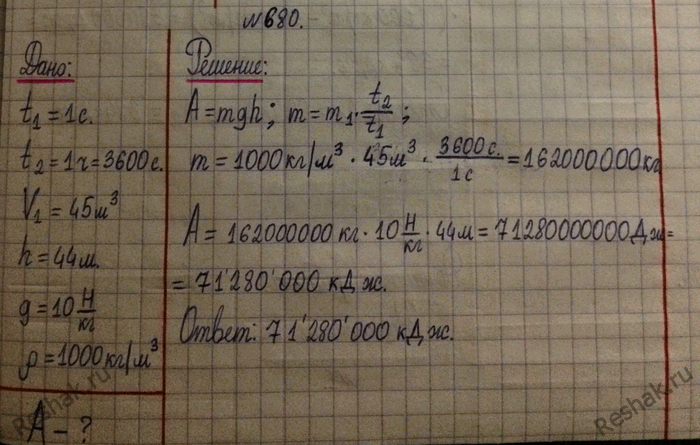 №680.
Дано:
t₁ = 1с.
t₂ = 1ч = 3600с.
V₁ = 45м³
h = 44м.
g = 10 Н/кг
ρ = 1000кг/м³
A - ?
Решение:
A = mgh; m = m₁ · t₂/t₁;
m = 1000кг/м³ · 45м³ · 3600с./1с = 162000000кг
A = 162000000 кг · 10 Н/кг · 44м = 71280000000Дж =
= 71'280'000 кДж.
Ответ: 71'280'000 кДж.
Reshak.ru
Reshak.ru